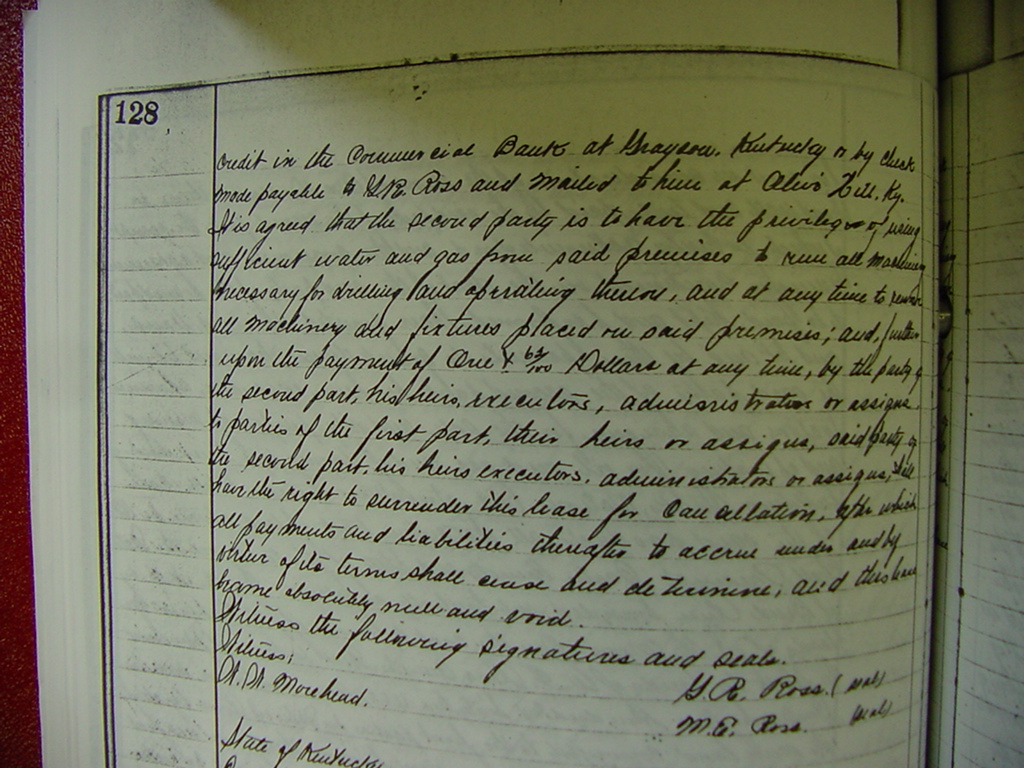 128
credit in the Commercial Bank at Grayson, Kentucky or by check
made payable to G.R. Ross and mailed to him at Olive Hill, Ky.
It is agreed that the second party is to have the privilege of using
sufficient water and gas from said premises to run all machinery
necessary for drilling and operating thereon, and at any time to remove
all machinery and fixtures placed on said premises; and, further
upon the payment of One & 62/100 Dollars at any time, by the party of
the second part, his heirs, executors, administrators or assigns,
to parties of the first part, their heirs or assigns, said party of
the second part, his heirs executors, administrators or assigns, shall
have the right to surrender this lease for Cancellation, after which
all payments and liabilities thereafter to accrue under and by
virtue of its terms shall cease and determine, and this lease
become absolutely null and void.
Witness the following signatures and seals.
Witness;
Morehead.
G.R. Ross. (seal)
M.E. Ross. (seal)
State of Kentucky